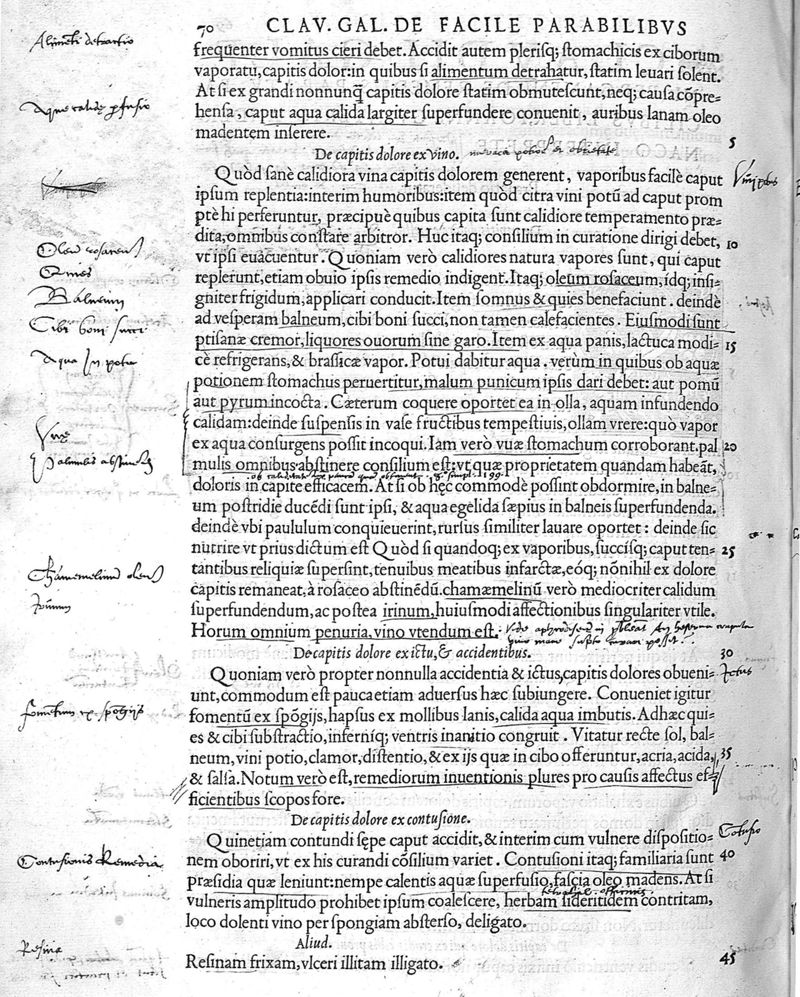 70 CLAV. GAL. DE FACILE PARABILIBVS
Alimēti detractio
frequenter vomitus cieri debet. Accidit autem plerisq; stomachicis ex ciborum
vaporatu, capitis dolor: in quibus si alimentum detrahatur, statim leuari solent.
At si ex grandi nonnunq̄ capitis dolore statim obmutescunt, neq; causa cōpre-
Aque calide pfusio
hensa, caput aqua calida largiter superfundere conuenit, auribus lanam oleo
madentem inserere. 5
De capitis dolore ex vino.
Quòd sanè calidiora vina capitis dolorem generent, vaporibus facilè caput
ipsum replentia: interim humoribus: item quòd citra vini potū ad caput prom
ptè hi perferuntur, præcipuè quibus capita sunt calidiore temperamento præ-
dita, omnibus cōstare arbitror. Huc itaq; consilium in curatione dirigi debet, 10
vt ipsi euacuentur. Quoniam verò calidiores natura vapores sunt, qui caput
Oleū rosaceū
replerunt, etiam obuio ipsis remedio indigent. Itaq; oleum rosaceum, idq; insi-
Quies
gniter frigidum, applicari conducit. Item somnus & quies benefaciunt. deindè
Balneum
ad vesperam balneum, cibi boni succi, non tamen calefacientes. Eiusmodi sunt
Cibi boni succi
ptisanæ cremor, liquores ouorum sine garo. Item ex aqua panis, lactuca modi- 15
Aqua in potu
cè refrigerans, & brassicæ vapor. Potui dabitur aqua. verùm in quibus ob aquæ
potionem stomachus peruertitur, malum punicum ipsis dari debet: aut pomū
aut pyrum incocta. Cæterum coquere oportet ea in olla, aquam infundendo
calidam: deinde suspensis in vase fructibus tempestiuis, ollam vrere: quò vapor
Vvę
ex aqua consurgens possit incoqui. Iam verò vuæ stomachum corroborant. pal 20
Palmulis abstinendū
mulis omnibus abstinere consilium est: vt quæ proprietatem quandam habeāt,
doloris in capite efficacem. At si ob hęc commodè possint obdormire, in balne-
um postridie ducēdi sunt ipsi, & aqua egelida sæpius in balneis superfundenda.
deindè vbi paululum conquieuerint, rursus similiter lauare oportet: deinde sic
nutrire vt prius dictum est Quòd si quandoq; ex vaporibus, succisq; caput ten- 25
Chamemelinū oleū
tantibus reliquiæ supersint, tenuibus meatibus infarctæ, eóq; nōnihil ex dolore
capitis remaneat, à rosaceo abstinēdū. chamæmelinū verò mediocriter calidum
Irinum
superfundendum, ac postea irinum, huiusmodi affectionibus singulariter vtile.
Horum omnium penuria, vino vtendum est.
De capitis dolore ex ictu, & accidentibus. 30
Quoniam verò propter nonnulla accidentia & ictus, capitis dolores obueni- Ictus
unt, commodum est pauca etiam aduersus hæc subiungere. Conueniet igitur
fomētum ex spōgijs
fomentū ex spōgijs, hapsus ex mollibus lanis, calida aqua imbutis. Adhæc qui-
es & cibi substractio, infernìq; ventris inanitio congruit. Vitatur recte sol, bal-
neum, vini potio, clamor, distentio, & ex ijs quæ in cibo offeruntur, acria, acida, 35
& salsa. Notum verò est, remediorum inuentionis plures pro causis affectus ef-
ficientibus scopos fore.
De capitis dolore ex contusione.
Quinetiam contundi sępe caput accidit, & interim cum vulnere dispositio- Cōtusio
Contusionis Remedia
nem oboriri, vt ex his curandi cōsilium variet. Contusioni itaq; familiaria sunt 40
præsidia quæ leniunt: nempe calentis aquæ superfusio, fascia oleo madens. At si
vulneris amplitudo prohibet ipsum coalescere, herbam sideritidem contritam,
loco dolenti vino per spongiam absterso, deligato.
Aliud.
Resina
Resinam frixam, vlceri illitam illigato. 45